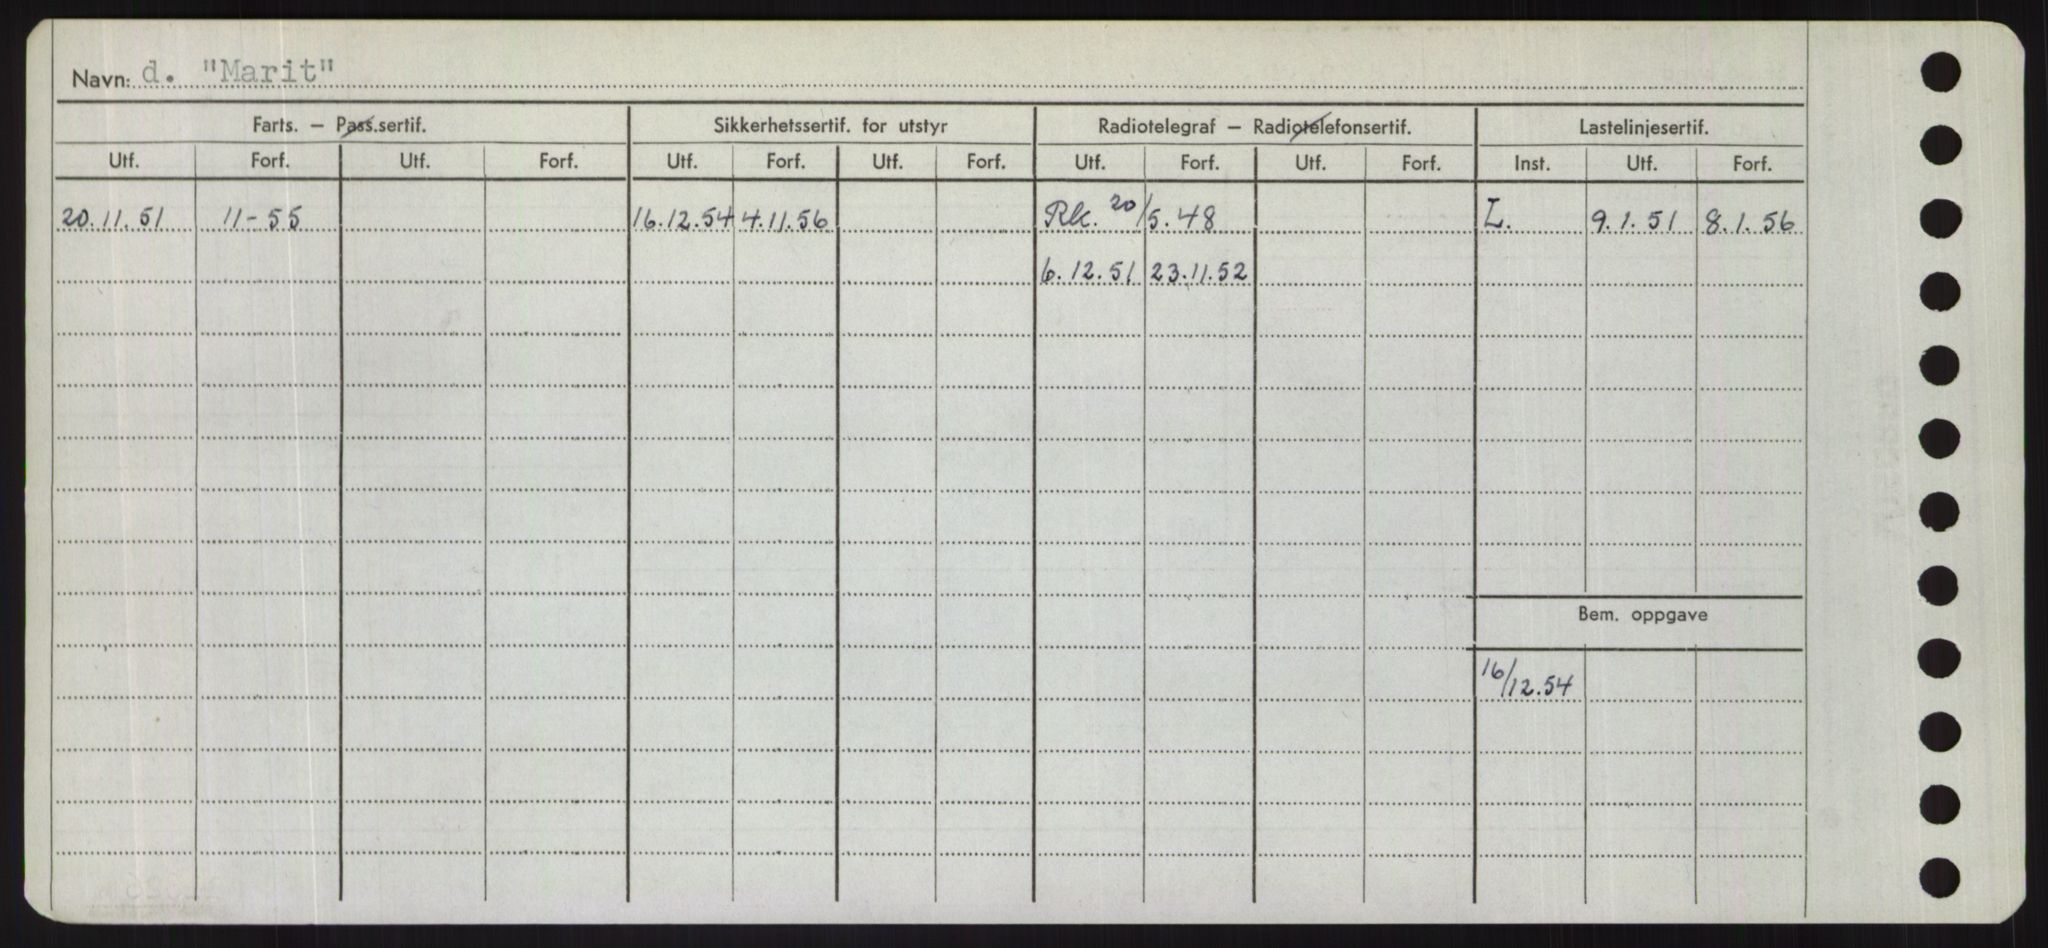 Navn: d. "Marit"
Farts. – Pass.sertif. Sikkerhetssertif. for utstyr Radiotelegraf – Radiotelefonsertif. Lastelinjesertif.
Utf. Forf. Utf. Forf. Utf. Forf. Utf. Forf. Utf. Forf. Utf. Forf. Inst. Utf. Forf.
20.11.51 11-55 16.12.54 4.11.56 Rk. 20/5.48 L. 9.1.51 8.1.56
6.12.51 23.11.52
Bem. oppgave
16/12.54